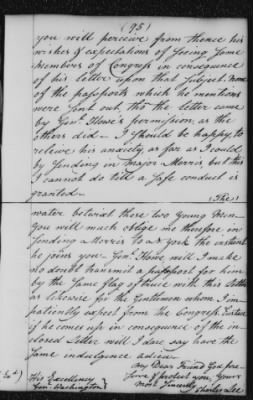 (95)
you will perceive from thence his
wishes & expectations of seeing some
members of Congress in consequence
of his letter upon that subject. None
of the passports which he mentions
were sent out, tho the letter came
by Genl. Howe's permission as the
others did — I should be happy to
relieve his anxiety as far as I could
by sending in Major Morris, but this
I cannot do till a safe conduct is
granted —
The
water betwixt these two young Men —
you will much oblige me therefore in
sending Morris to N York the instant
he joins you — Genl. Howe will I make
no doubt transmit a passport for him
by the same flag of truce with this letter
as likewise for the Gentlemen whom I im-
patiently expect from the Congress.
if he comes up in consequence of the in-
closed letter will I dare say have the
same indulgence adieu —
My Dear Friend God pre-
serve & protect you, Yours
most Sincerely
Charles Lee
His Excellency
Genl. Washington